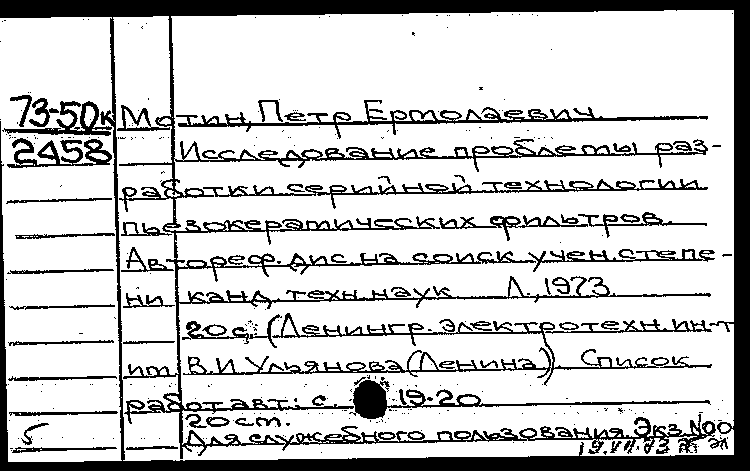 73-50к Мотин, Петр Ермолаевич.
2458 Исследование проблемы раз-
работки серийной технологии
пьезокерамических фильтров.
Автореф. дис. на соиск учен. степе-
ни канд. техн. наук Л., 1973.
20 с. (Ленингр. электротехн. ин-т
им. В.И Ульянова (Ленина)). Список
работ авт: с. 19-20
20 см.
5 Для служебного пользования Экз №00